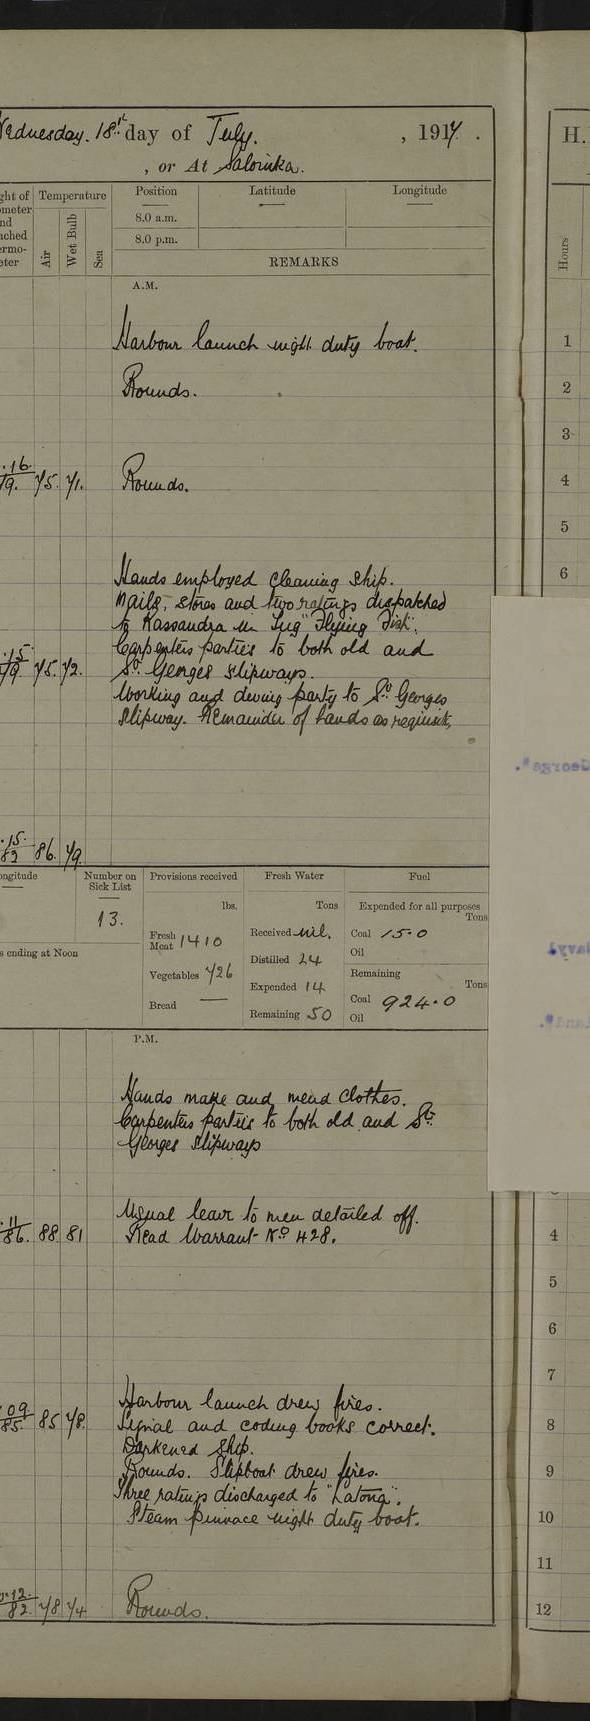 Wednesday. 18th day of July. , 1917 .
, or At Salonika.
Temperature
Air
Wet Bulb
Sea
Position Latitude Longitude
8.0 a.m.
8.0 p.m.
REMARKS
A.M.
Harbour launch night duty boat.
Rounds.
.16
79. 75. 71. Rounds.
Hands employed cleaning ship.
Mails, stores and two ratings dispatched
to Kassandra in Tug "Flying Fish".
Carpenters parties to both old and
.15
79. 75. 72. St Georges slipways.
Working and diving party to St Georges
slipway. Remainder of hands as requisite,
.15.
82 86. 79.
Number on
Sick List
13.
s ending at Noon
Provisions received
lbs.
Fresh Meat 1410
Vegetables 726
Bread —
Fresh Water
Tons
Received nil.
Distilled 24
Expended 14
Remaining 50
Fuel
Expended for all purposes
Tons
Coal 15.0
Oil
Remaining
Tons
Coal 924.0
Oil
P.M.
Hands make and mend clothes.
Carpenters parties to both old and St.
Georges slipways
Usual leave to men detailed off.
.11
86. 88 81 Read Warrant No 428.
Harbour launch drew fires.
.09
85. 85 78. Signal and coding books correct.
Darkened ship.
Rounds. Slipboat drew fires.
Three ratings discharged to "Latona".
Steam pinnace night duty boat.
.12.
82. 78 74 Rounds.
H.
Hours
1
2
3
4
5
6
4
5
6
7
8
9
10
11
12